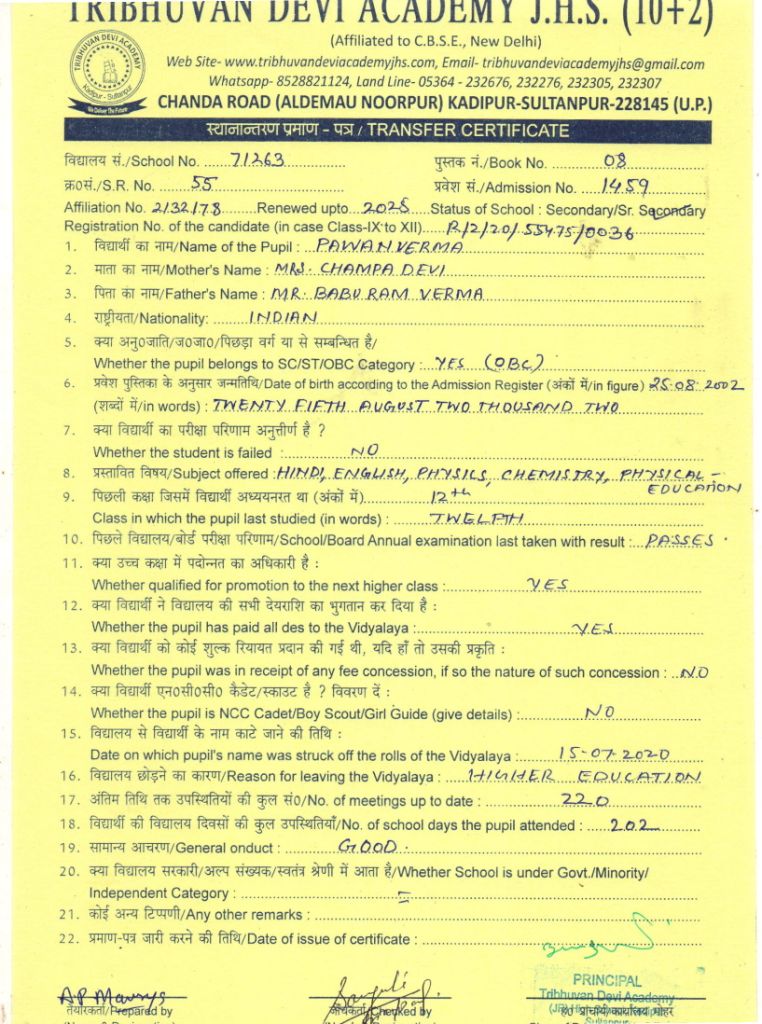 TRIBHUVAN DEVI ACADEMY J.H.S. (10+2)
(Affiliated to C.B.S.E., New Delhi)
Web Site- www.tribhuvandeviacademyjhs.com, Email- tribhuvandeviacademyjhs@gmail.com
Whatsapp- 8528821124, Land Line- 05364 - 232676, 232276, 232305, 232307
CHANDA ROAD (ALDEMAU NOORPUR) KADIPUR-SULTANPUR-228145 (U.P.)
TRIBHUVAN DEVI ACADEMY
Kadipur - Sultanpur
We Deliver The Future
स्थानान्तरण प्रमाण - पत्र / TRANSFER CERTIFICATE
विद्यालय सं./School No. 71263 पुस्तक नं./Book No. 08
क्र0सं./S.R. No. 55 प्रवेश सं./Admission No. 1459
Affiliation No. 2132178 Renewed upto 2025 Status of School : Secondary/Sr. Secondary
Registration No. of the candidate (in case Class-IX to XII) R/2/20/55475/0036
1. विद्यार्थी का नाम/Name of the Pupil : PAWAN VERMA
2. माता का नाम/Mother's Name : MRS. CHAMPA DEVI
3. पिता का नाम/Father's Name : MR. BABU RAM VERMA
4. राष्ट्रीयता/Nationality: INDIAN
5. क्या अनु0जाति/ज0जा0/पिछड़ा वर्ग या से सम्बन्धित है/
Whether the pupil belongs to SC/ST/OBC Category : YES (OBC)
6. प्रवेश पुस्तिका के अनुसार जन्मतिथि/Date of birth according to the Admission Register (अंकों में/in figure) 25.08.2002
(शब्दों में/in words) : TWENTY FIFTH AUGUST TWO THOUSAND TWO
7. क्या विद्यार्थी का परीक्षा परिणाम अनुत्तीर्ण है ?
Whether the student is failed : NO
8. प्रस्तावित विषय/Subject offered : HINDI, ENGLISH, PHYSICS, CHEMISTRY, PHYSICAL -
EDUCATION
9. पिछली कक्षा जिसमें विद्यार्थी अध्ययनरत था (अंकों में) 12th
Class in which the pupil last studied (in words) : TWELPTH
10. पिछले विद्यालय/बोर्ड परीक्षा परिणाम/School/Board Annual examination last taken with result : PASSES.
11. क्या उच्च कक्षा में पदोन्नत का अधिकारी है :
Whether qualified for promotion to the next higher class : YES
12. क्या विद्यार्थी ने विद्यालय की सभी देयराशि का भुगतान कर दिया है :
Whether the pupil has paid all des to the Vidyalaya : YES
13. क्या विद्यार्थी को कोई शुल्क रियायत प्रदान की गई थी, यदि हाँ तो उसकी प्रकृति :
Whether the pupil was in receipt of any fee concession, if so the nature of such concession : NO
14. क्या विद्यार्थी एन0सी0सी0 कैडेट/स्काउट है ? विवरण दें :
Whether the pupil is NCC Cadet/Boy Scout/Girl Guide (give details) : NO
15. विद्यालय से विद्यार्थी के नाम काटे जाने की तिथि :
Date on which pupil's name was struck off the rolls of the Vidyalaya : 15-07-2020
16. विद्यालय छोड़ने का कारण/Reason for leaving the Vidyalaya : HIGHER EDUCATION
17. अंतिम तिथि तक उपस्थितियों की कुल सं0/No. of meetings up to date : 220
18. विद्यार्थी की विद्यालय दिवसों की कुल उपस्थितियाँ/No. of school days the pupil attended : 202
19. सामान्य आचरण/General onduct : GOOD.
20. क्या विद्यालय सरकारी/अल्प संख्यक/स्वतंत्र श्रेणी में आता है/Whether School is under Govt./Minority/
Independent Category :
21. कोई अन्य टिप्पणी/Any other remarks :
22. प्रमाण-पत्र जारी करने की तिथि/Date of issue of certificate :
PRINCIPAL
Tribhuvan Devi Academy
A.P Maurya
तैयारकर्ता/Prepared by जाँचकर्ता/Checked by ह0 प्राचार्य/कार्यालय मोहर